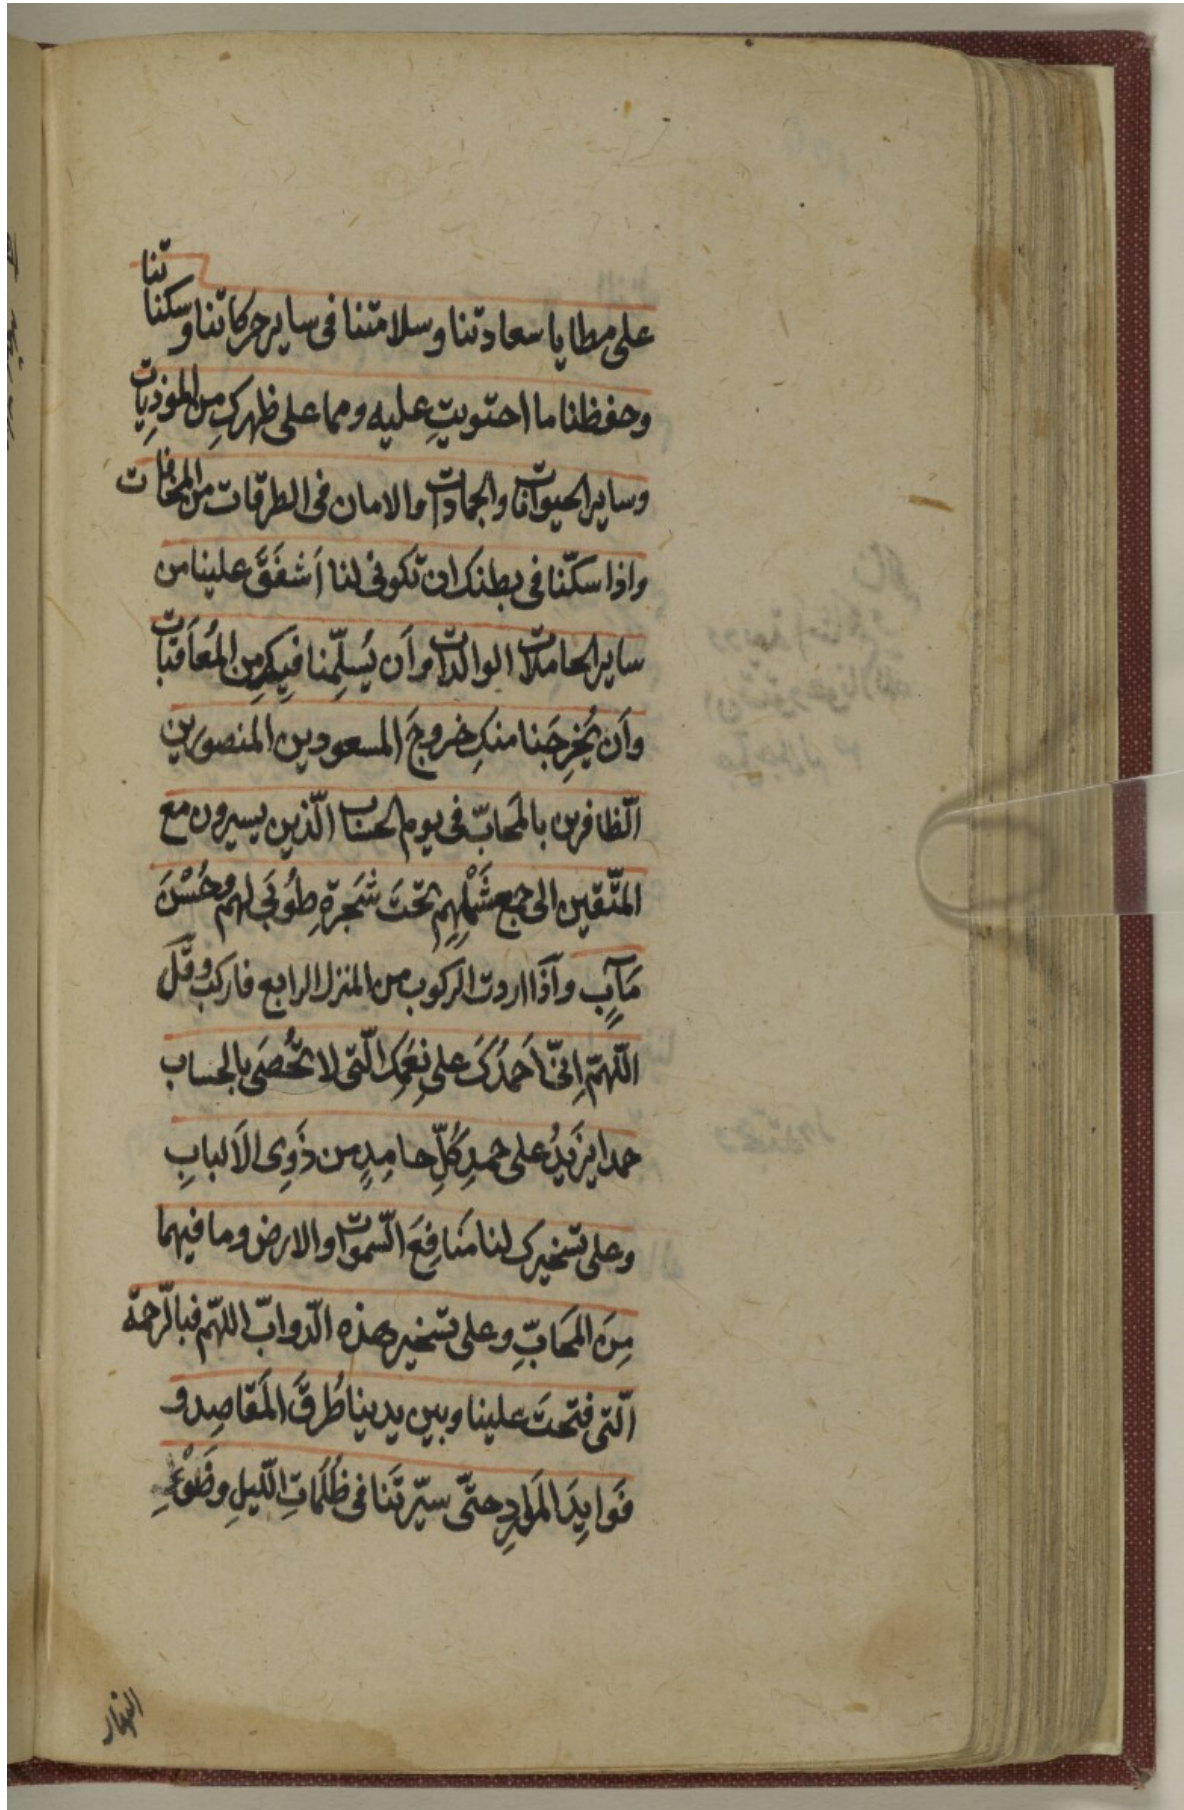 على مطايا سعادتنا وسلامتنا فى ساير حركاتنا وسكناتنا
وحفظنا ما احتويتِ عليه ومما على ظهركِ من الموذِيات
وساير الحيوانات والجمادات والامان فى الطرقات من المخافات
واذا سكّنّا فى بطنك ان تكونى لنا اَشفَقَ علينا من
ساير الحاملات الوالدات وأن يُسلِّمنا فيكِ مِن المُعاقبات
وأن يُخرِجَنا منكِ خروجَ المسعودين المنصورين
الّظافرين بالمَحابّ فى يوم الحساب الّذين يسيرون مع
المتّقين الى جمع شَمْلِهِم تحتَ شَجرةِ طُوبَى لهم وحُسْنَ
مَآبٍ وآذا اردت الركوب من المنزل الرابع فاركب وقُلْ
اللّهمّ اِنّى اَحمَدُكَ على نِعَمِك الّتى لا تُحصَى بالحساب
حمدا يزَيدُ على حمدِ كُلِّ حامِدٍ من ذَوِى الاَلبابِ
وعلى تسخيرك لنا مَنافِعَ السّموات والارض وما فيهما
مِنَ المَحَابِّ وعلى تسخير هذه الدّوابّ اللهّم فبالّرحمة
الّتى فتحتَ علينا وبين يدينا طُرقَ المَقاصِد و
فَوايِدَ المَوارِدِ حتّى سيّرتَنا فى ظُلَمَاتِ الّليلِ وضَوْءِ
النهار